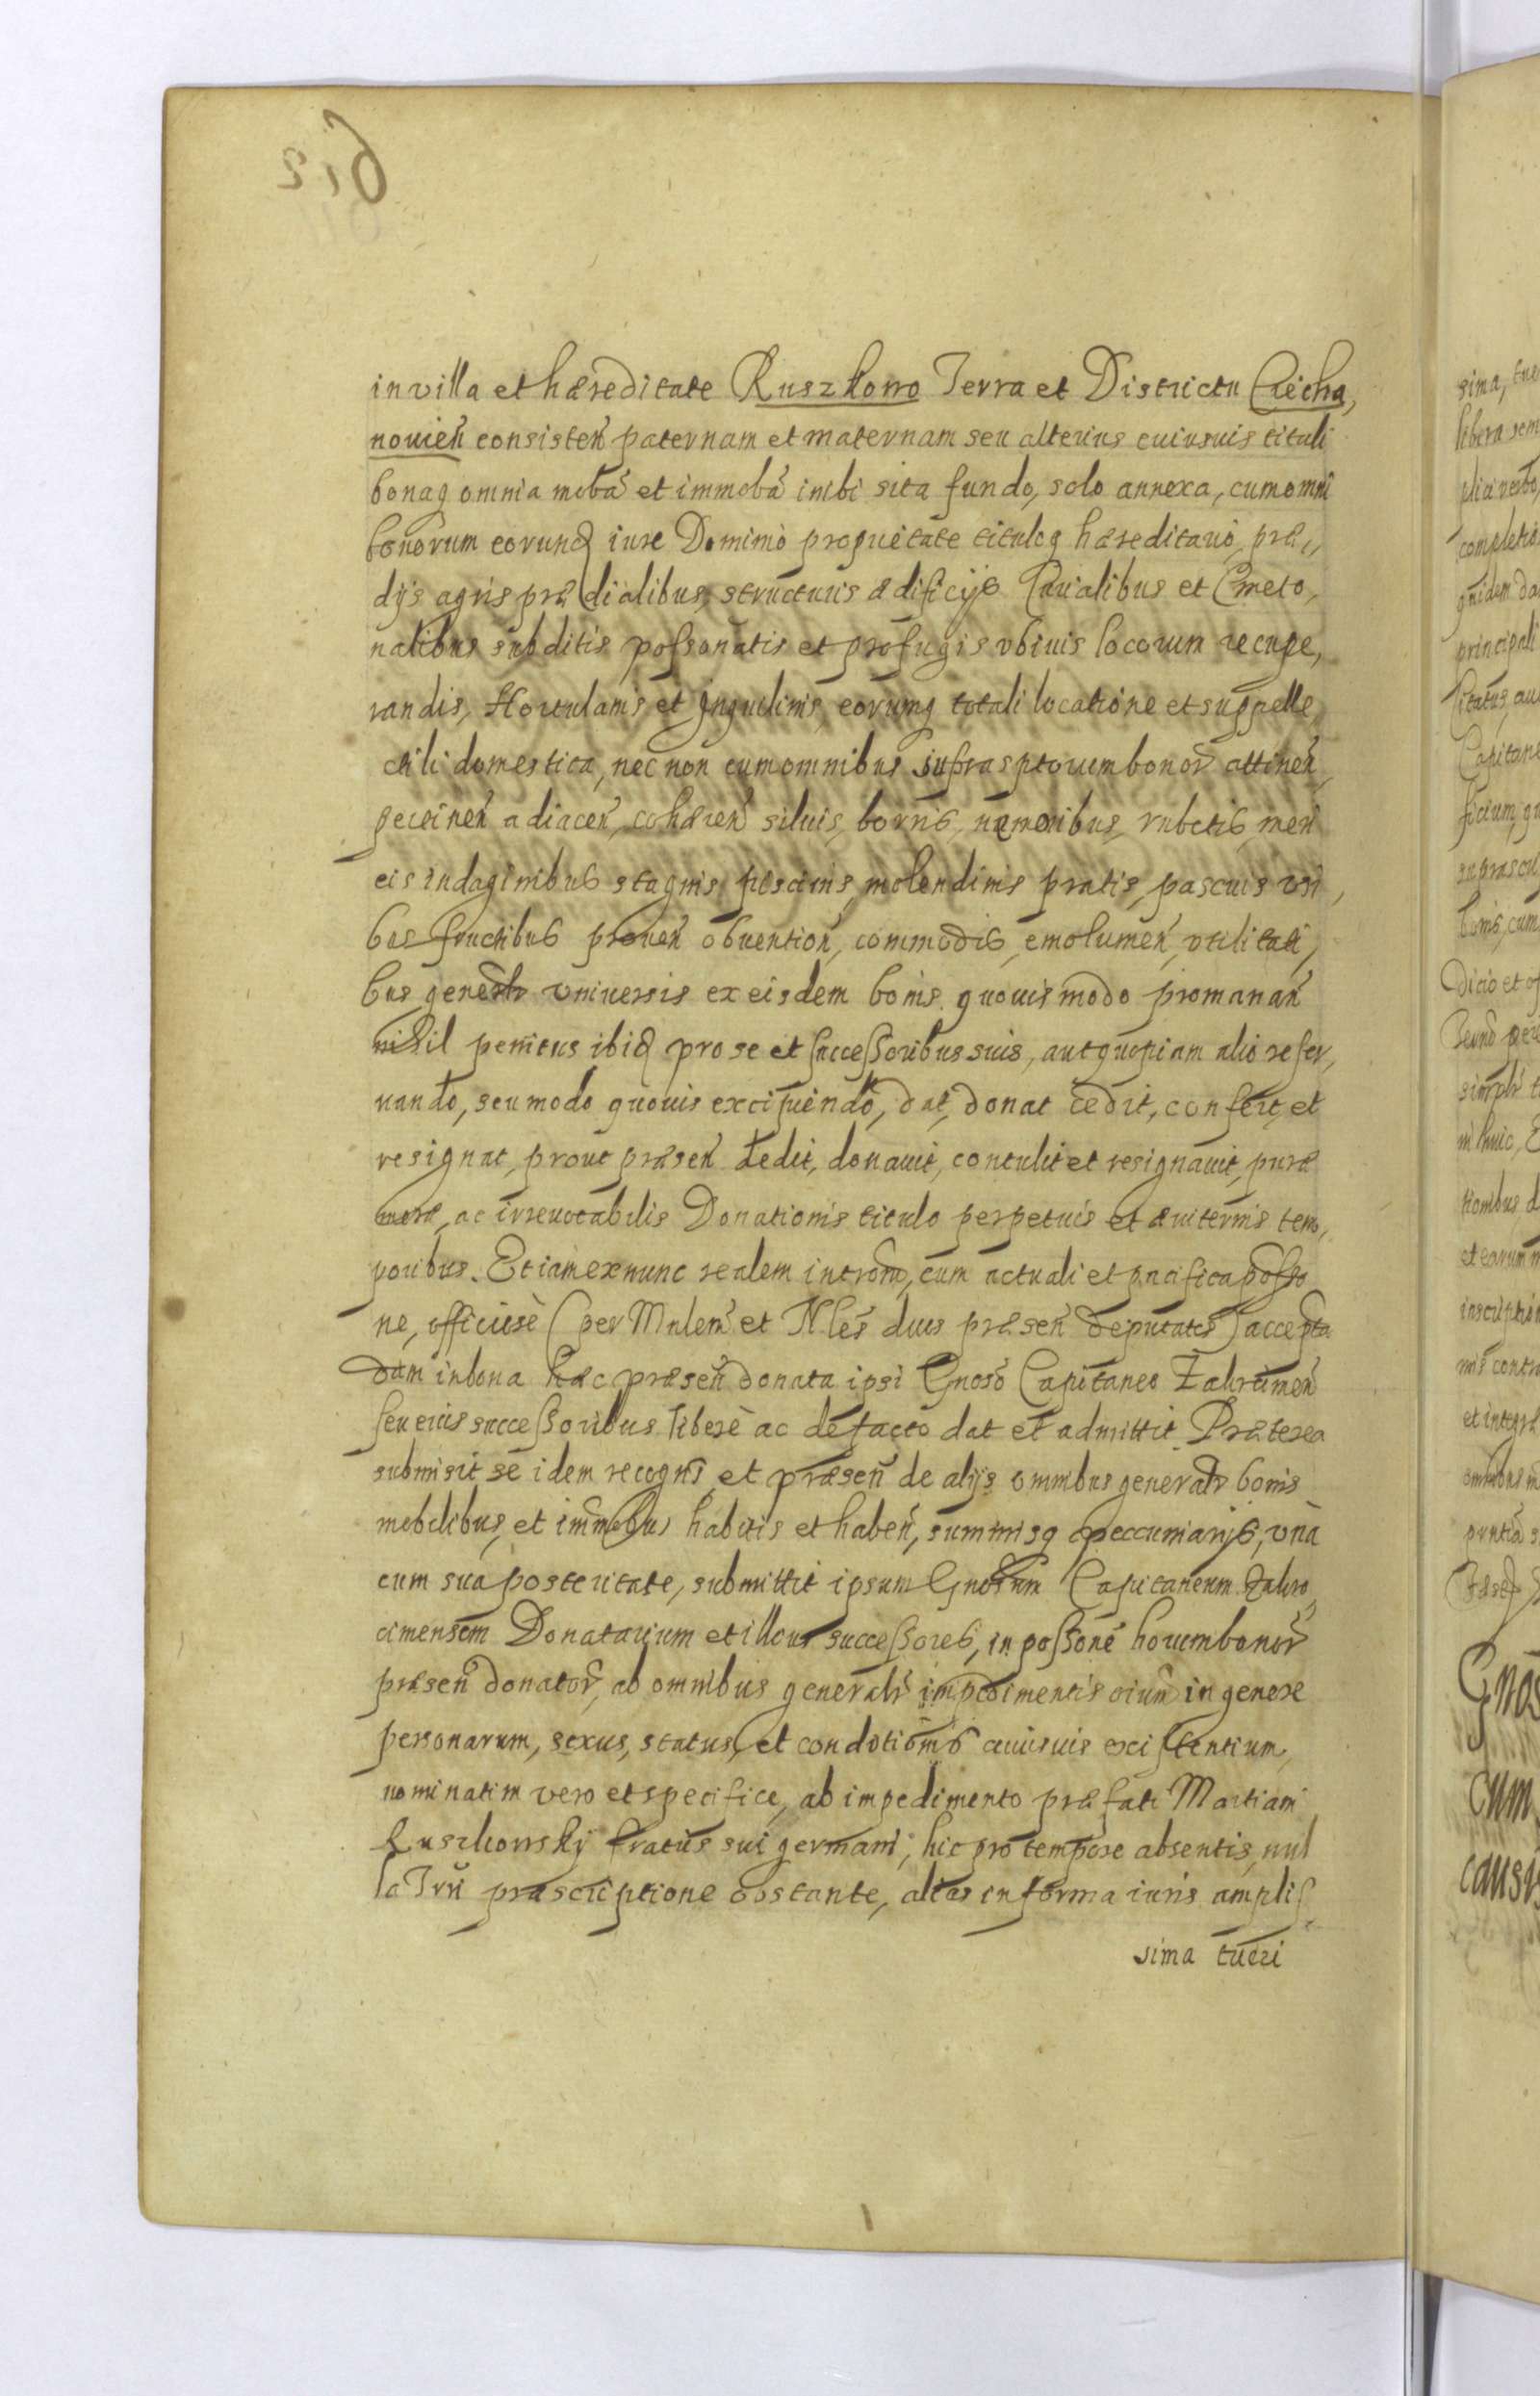 612
in villa et hæreditate Ruszkowo Terra et Districtu Ciecha,
nouien̄ consisten̄ paternam et maternam seu alterius cuiusuis tituli
bonaq omnia mobã et immobã inibi sita fundo, solo annexa, cum omni
bonorum eorund iure Dominio proprietate tituloq hæreditario, præ,,
dijs agris prædialibus, structuris ædificijs Curialibus et Cmeto,
nalibus subditis possonatis et profugis vbiuis locorum recupe,
randis, Hortulanis et Inquilinis, eorumq totali locatione et suppelle,
ctili domestica, nec non cum omnibus suprasptorum bonor̃ attinen̄,
pertinen̄ adiacen̄, cohæren̄ siluis, borris, nemoribus, rubetis, mer
eis indaginibus stagnis piscinis, molendinis pratis, pascuis vsi,
bus fructibus prouen̄ obuention̄, commodis, emolumen̄, vtilitati,
bus generlr vniuersis ex eisdem bonis quouis modo promanan̄
nihil penitus ibid pro se et successoribus suis, aut quopiam alio reser,
uando, seu modo quouis excipiendo, dat, donat cedit, confert, et
resignat, prout præsen̄ dedit, donauit, contulit et resignauit, puræ
meræ, ac irreuocabilis Donationis titulo perpetuis et æuiternis tem,
poribus. Etiam ex nunc realem introm̃, cum actuali et pacifica posso
ne, officiosè (per Mnlem̃ et Nles̃ duos præsen̄ deputatos) accepta
dam in bona hæc præsen̄ donata ipsi Gnoso Capitaneo Zakrocimen̄
seu eius successoribus liberè ac defacto dat et admittit. Præterea
submisit se idem recogns, et præsen̄ de alijs omnibus generalr bonis
mobilibus, et immobus habitis et haben̄, summisq peccuniarijs, vnà
cum sua posteritate, submittit ipsum Gnosum Capitaneum Zakro,
cimensem Donatarium et illius successores, in possone horum bonor̃
præsen̄ donator̃, ab omnibus generalr impedimentis oium in genere
personarum, sexus, status, et conditionis cuiusuis existentium,
nominatim vero et specifice, ab impedimento præfati Martiani
Ruszkowskij fratris sui germani, hic pro tempore absentis, nul
la Trrm̃ præscriptione obstante, alias in forma iuris amplis
sima tueri